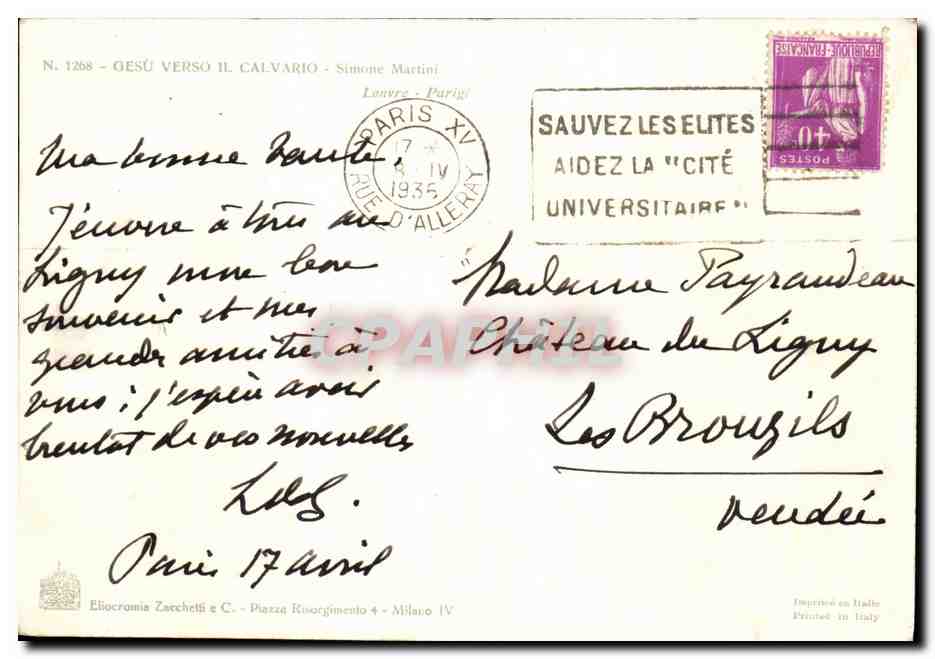 N. 1268 - GESÙ VERSO IL CALVARIO - Simone Martini
Louvre - Parigi
PARIS XV
17 *
8 IV
1935
RUE D'ALLERAY
SAUVEZ LES ELITES
AIDEZ LA "CITÉ
UNIVERSITAIRE"
REPUBLIQUE-FRANÇAISE
40c
POSTES
Ma bonne tante,
J'envoie à tous au
Ligny mon bon
souvenir et mes
grandes amitiés à
vous ; j'espère avoir
bientot de vos nouvelles
Paris 17 avril
Madame Payraudeau
Château du Ligny
Les Brouzils
Vendée
CPAPHIL
Eliocromia Zacchetti e C. - Piazza Risorgimento 4 - Milano IV
Imprimé en Italie
Printed in Italy